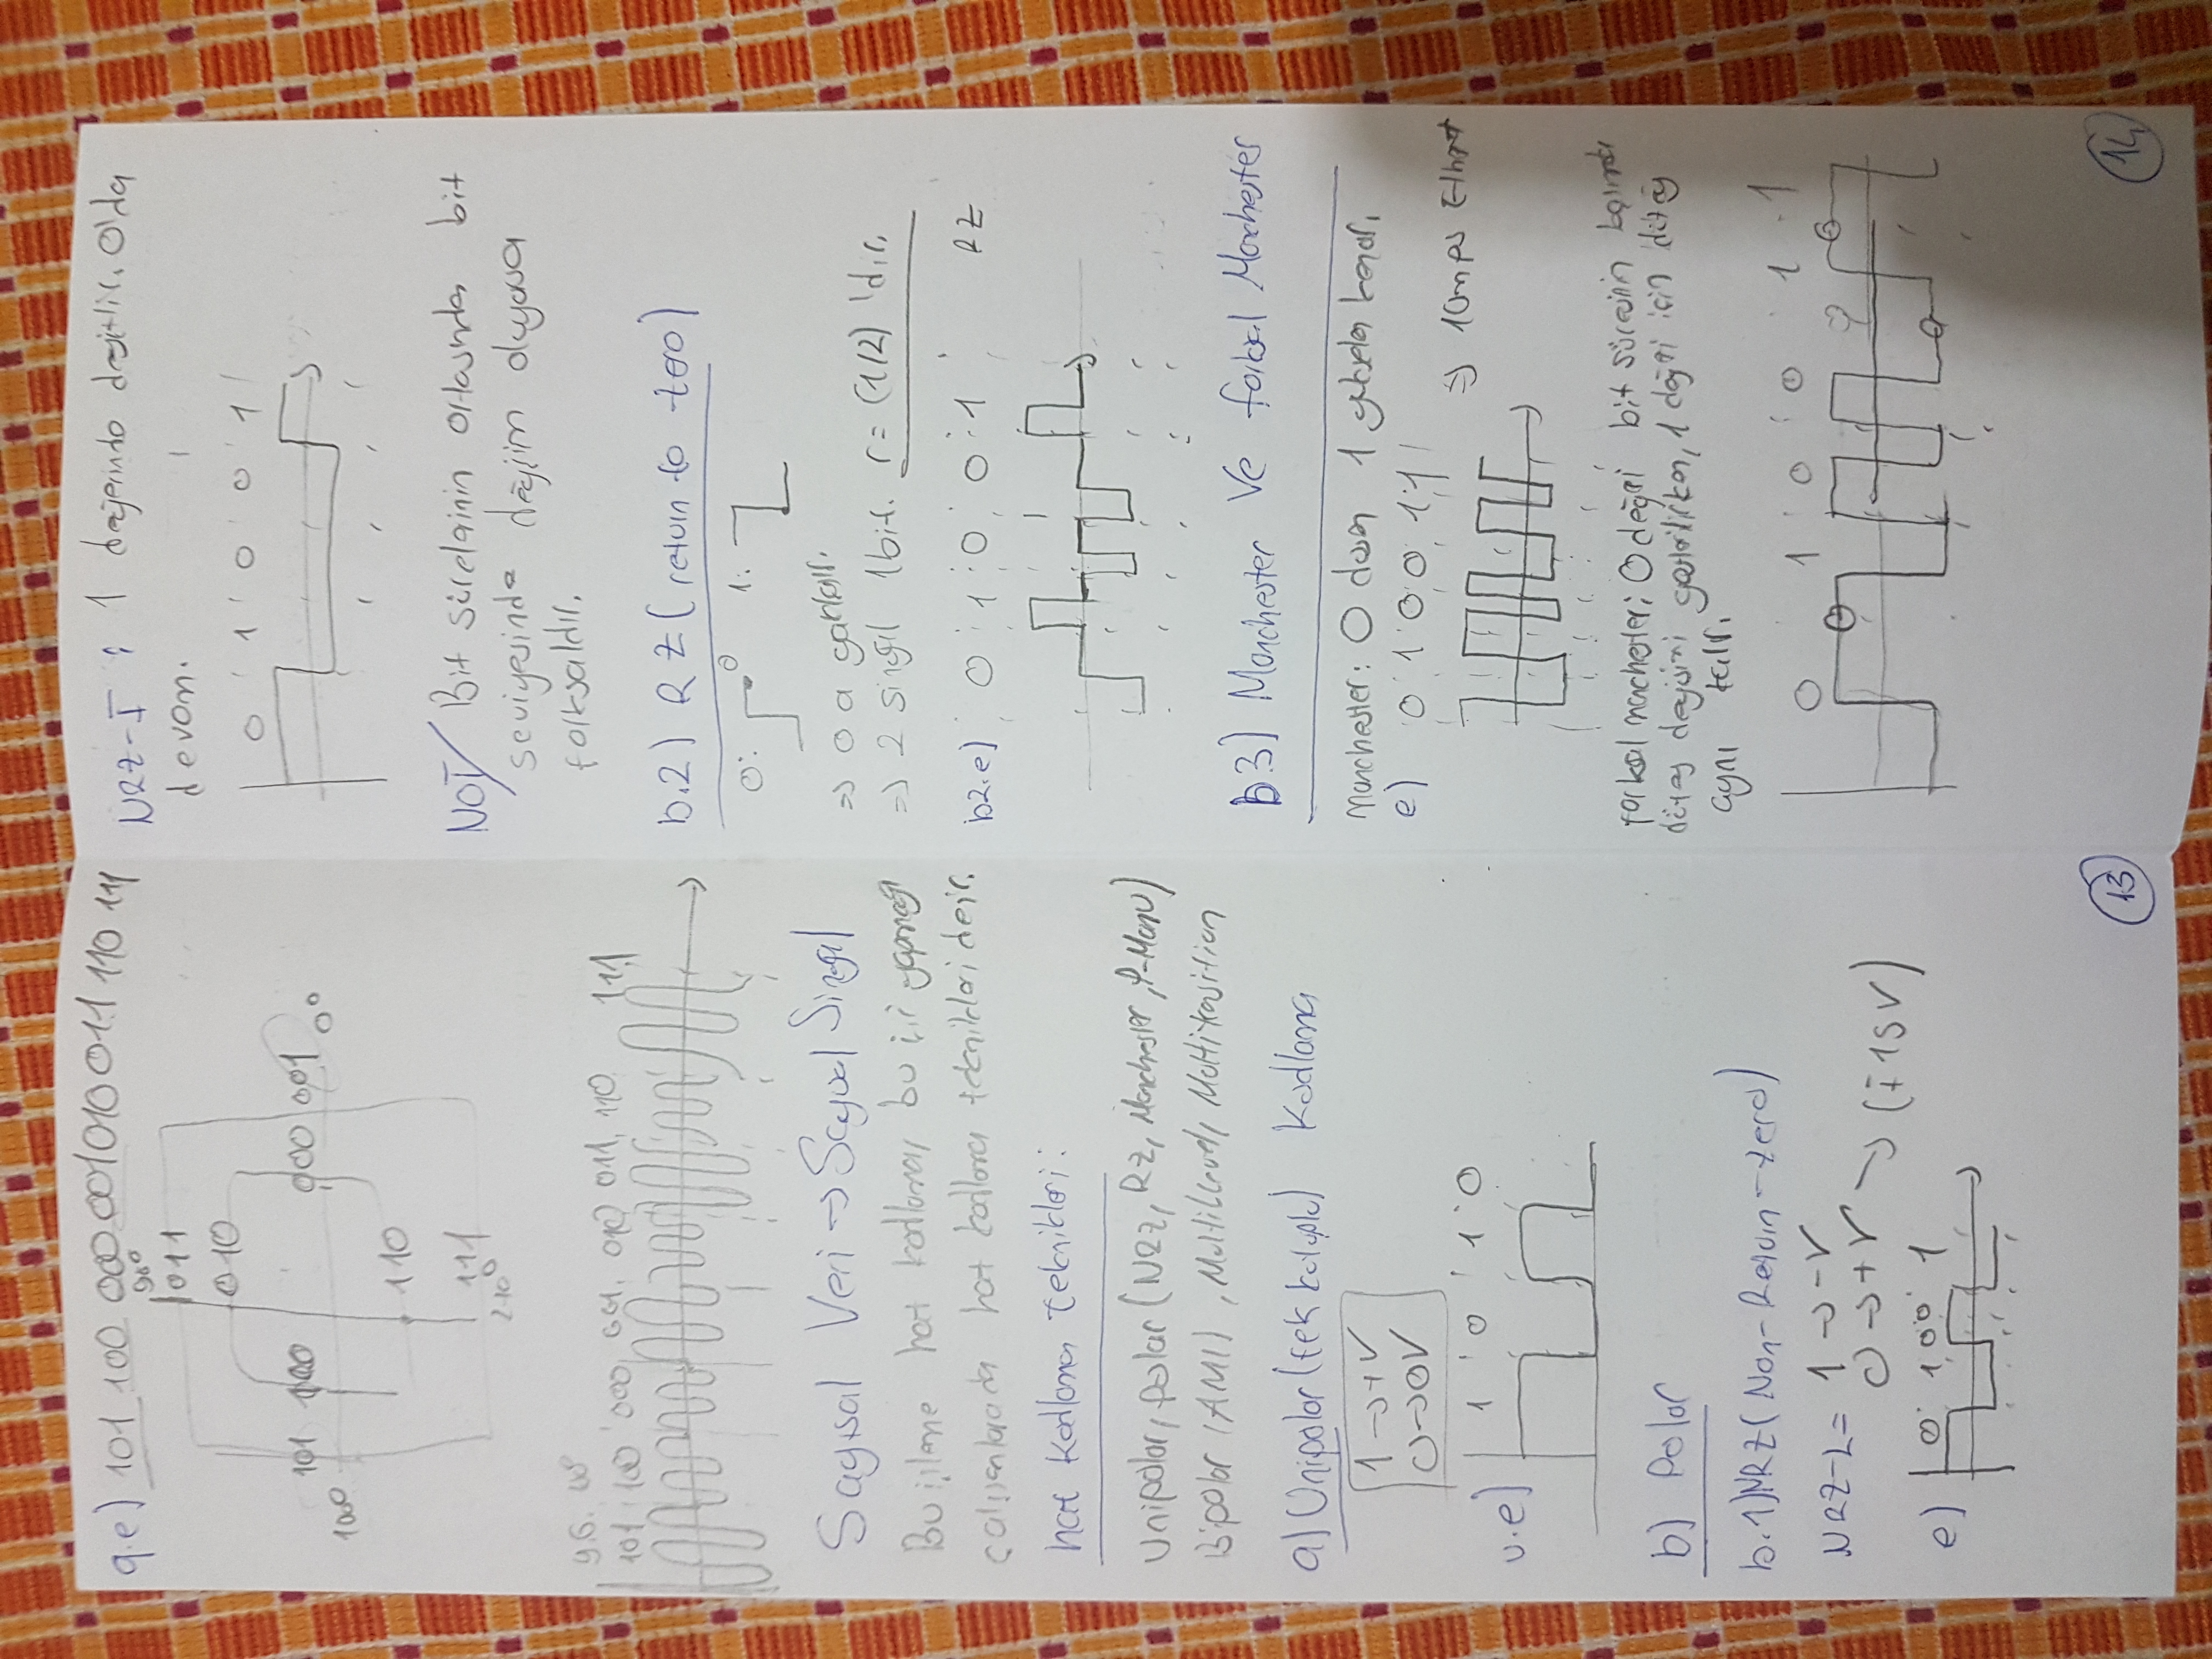 q.e) 101 100 000 001 010 011 110 111
90°
011
010
101 100 000 001 0°
180
110
111
270°
101 100 000 001 010 011 110 111
Sayısal Veri → Sayısal Sinyal
Bu işleme hat kodlama, bu işi yapmaya
çalışanlara da hat kodlama teknikleri denir.
hat kodlama teknikleri:
Unipolar, polar (NRZ, RZ, Manchester,
Bipolar (AMI), Multilevel, Multitransition
a) Unipolar (tek kutuplu) Kodlama
1 → +V
0 → 0V
u.e) 1 0 1 0
b) Polar
b.1) NRZ (Non-Return-zero)
NRZ-L = 1 → -V
0 → +V → (±15V)
e) 0 1 0 0 1
13
NRZ-I : 1 değerinde değişir. 0'da
devam.
0 1 0 0 1
NOT/ Bit sürelerinin ortasında bit
seviyesinde değişim oluyorsa
farksaldır.
b.2) RZ (return to zero)
0: 0 1:
⇒ 0 a
⇒ 2 sinyal 1 bit. r = (1/2) 'dir.
b2.e) 0 1 0 0 1 RZ
b.3) Manchester Ve farksal Manchester
Manchester: 0 düşen 1 yükselen kenar.
e) 0 1 0 0 1 1
⇒ 10mps
farksal manchester: 0 değeri bit süresinin başında
düzey değişimi gösterilirken, 1 değeri için düzey
aynı kalır.
0 1 0 0 1 1
14